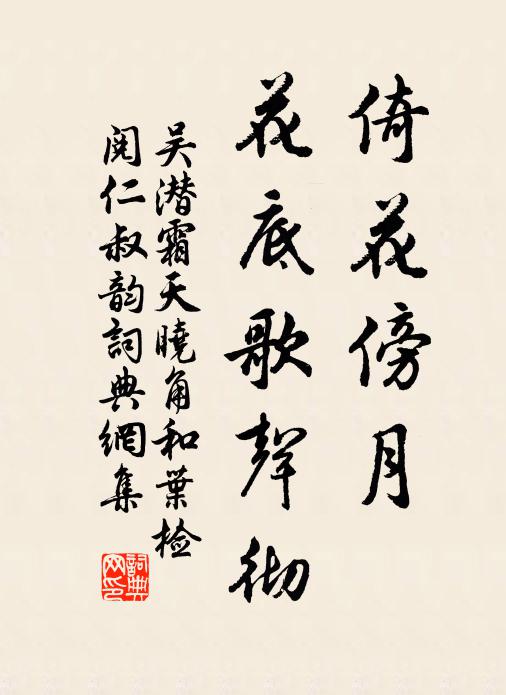 倚花傍月
花底歌聲彻
吴潜霜天曉角和葉检
阅仁叔韵詞典網集
詞典网印